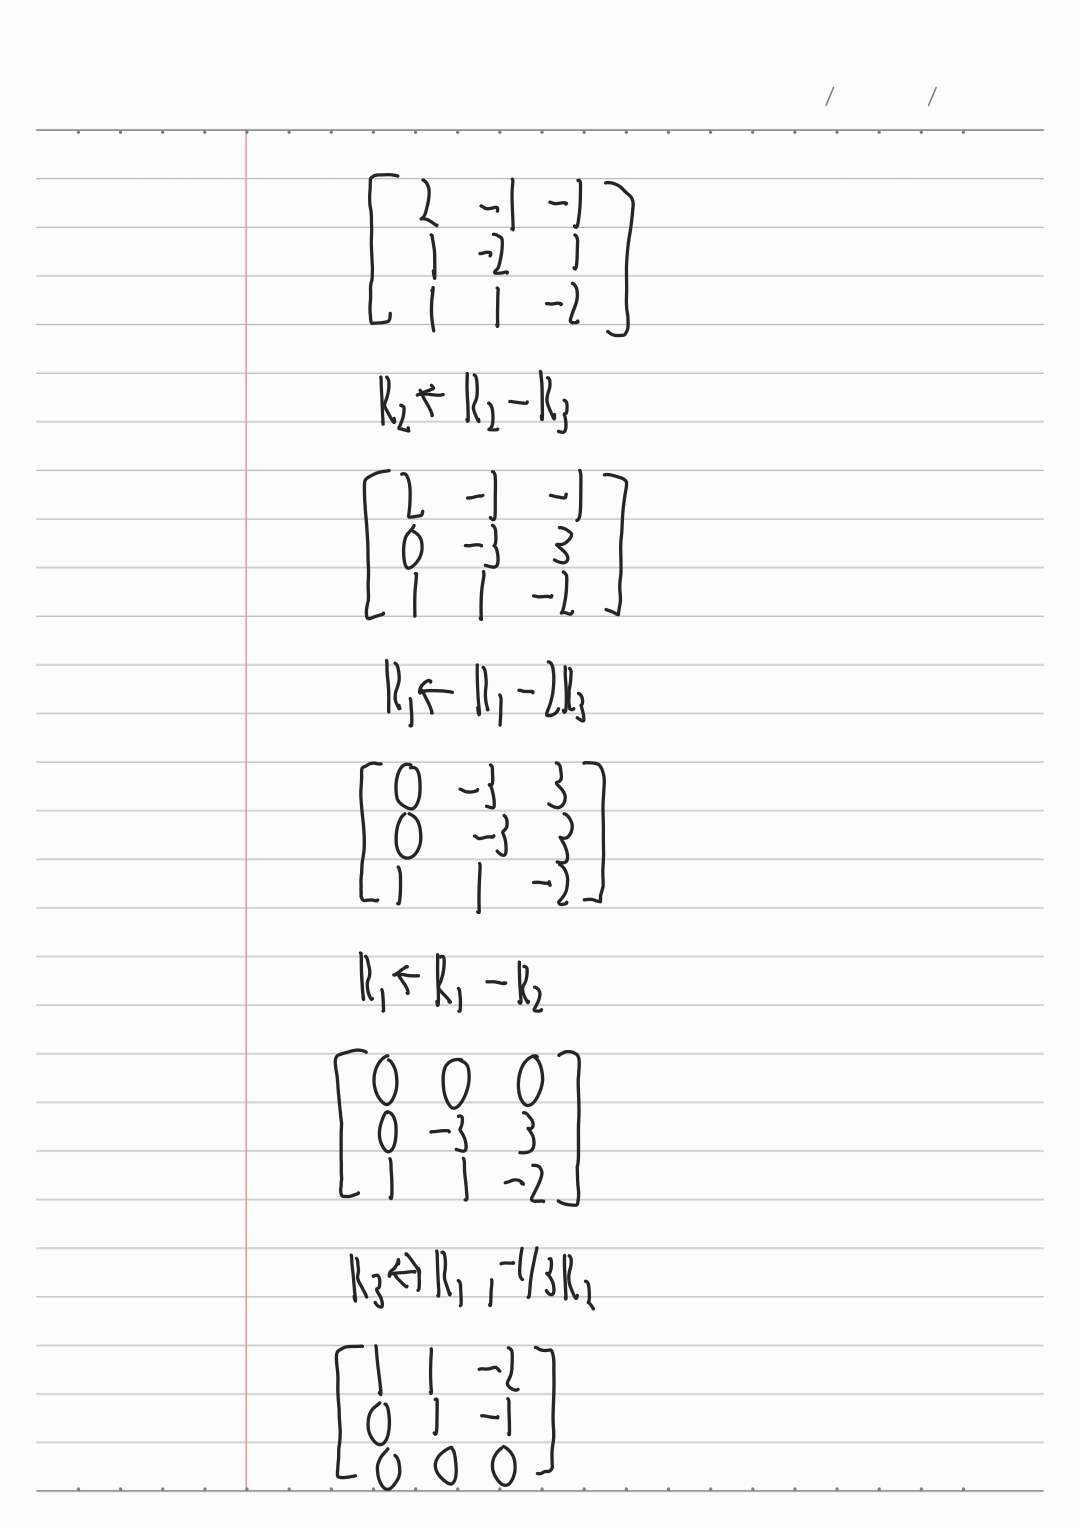 / /
[ 2 -1 -1 ]
[ 1 -2 1 ]
[ 1 1 -2 ]
R₂ ← R₂ - R₃
[ 2 -1 -1 ]
[ 0 -3 3 ]
[ 1 1 -2 ]
R₁ ← R₁ - 2R₃
[ 0 -3 3 ]
[ 0 -3 3 ]
[ 1 1 -2 ]
R₁ ← R₁ - R₂
[ 0 0 0 ]
[ 0 -3 3 ]
[ 1 1 -2 ]
R₃ ↔ R₁ , -1/3 R₂
[ 1 1 -2 ]
[ 0 1 -1 ]
[ 0 0 0 ]